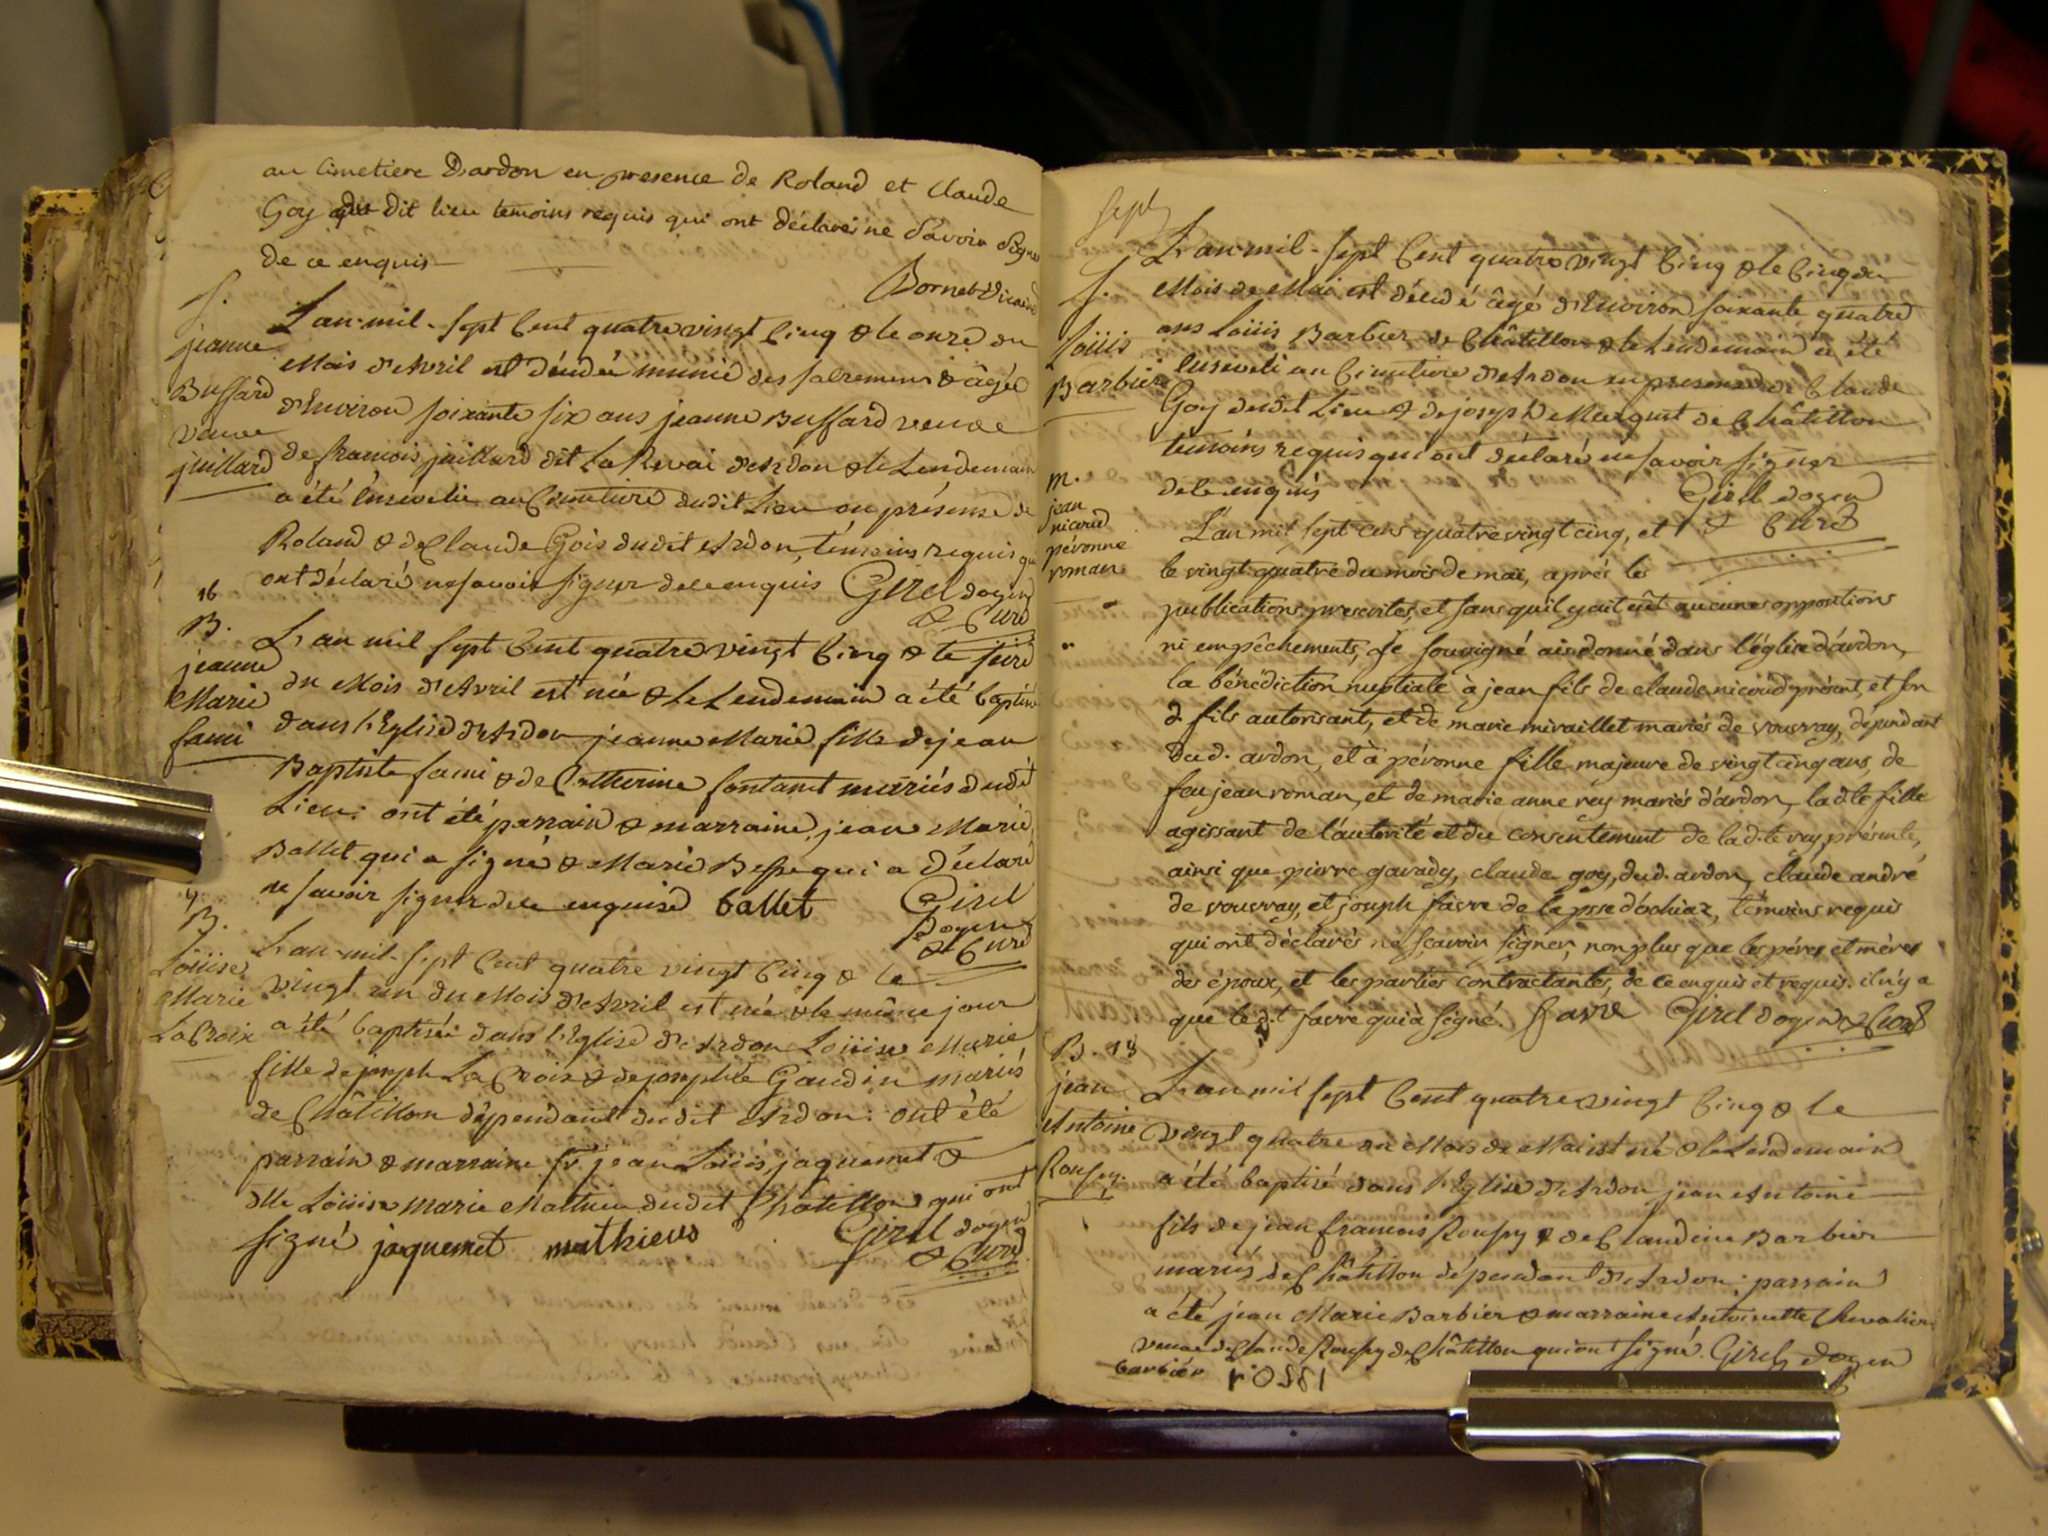 au Cimetiere Dardon en presence de Roland et Claude
Goy du dit lieu temoins requis qui ont déclaré ne Savoir Signer
de ce enquis
Bornet Vicaire
S.
jeanne
Buffard
veuve
juillard
L'an mil-Sept Cent quatre vingt Cinq & le onze du
Mois d'Avril est décédée munie des sacremens & âgée
d'Environ soixante six ans jeanne Buffard veuve
de francois juillard dit La d'Ardon & le Lendemain
a été Ensevelie au Cimetiere dudit Lieu en présence de
Roland & de Claude Gois dudit Ardon, témoins requis qui
ont déclaré ne savoir signer de ce enquis Girel doyen
& Curé
16
B.
jeanne
Marie
fami
L'an mil sept Cent quatre vingt Cinq & le seize
du Mois d'Avril est née & le Lendemain a été baptisée
dans l'Eglise d'Ardon jeanne Marie fille de jean
Baptiste fami & de Catherine fontanet mariés dudit
Lieu: ont été parrain & marraine, jean Marie
Ballet qui a signé & Marie Besse qui a déclaré
ne savoir signer de ce enquise ballet Girel
Doyen
& Curé
B.
Loüise
Marie
La Croix
L'an mil-sept Cent quatre vingt Cinq & le
vingt un du Mois d'Avril est née & le même jour
a été baptisée dans l'Eglise d'Ardon Loüise Marie
fille de joseph La Croix & de josephte Gaudin mariés
de Châtillon dépendant dudit Ardon: ont été
parrain & marraine sr. jean Loüis jaquemet &
dlle Loüise Marie Mathieu dudit Châtillon qui ont
signé jaquemet mathieus Girel doyen
& Curé
Sept
S.
Loüis
Barbier
L'an mil-sept Cent quatre vingt Cinq & le Cinq du
Mois de Mai est décédé âgé d'Environ soixante quatre
ans Loüis Barbier de Châtillon & le Lendemain a été
Enseveli au Cimetiere d'Ardon en presence de Claude
Goy dudit Lieu & de joseph Marquet de Châtillon
temoins requis qui ont déclaré ne savoir signer
de ce enquis Girel doyen
& Curé
m.
jean
nicoud
péronne
roman
L'an mil sept cens quatre vingt cinq, et
le vingt quatre du mois de maï, aprés les
publications prescrites, et sans qu'il y ait eüt aucunes oppositions
ni empêchements, Je soussigné ais donné dans l'église d'ardon,
la bénédiction nuptiale à jean fils de claude nicoud présent, et son
d. fils autorisant, et de marie miraillet mariés de vouvray, dépendant
dud. ardon, et à péronne fille majeure de vingt cinq ans, de
feu jean roman, et de marie anne rey mariés d'ardon, lad.te fille
agissant de l'autorité et du consentement de lad.te rey, présente,
ainsi que pierre gavady, claude goy, dud. ardon, claude andré
de vouvray, et joseph favre de la psse d'ochiaz, témoins requis
qui ont déclarés ne sçavoir signer, non plus que les péres et méres
des époux, et les parties contractantes, de ce enquis et requis. il n'y a
que le d.t favre qui à signé. favre Girel doyen & Curé
B. 18
jean
Antoine
Roupsy.
L'an mil sept Cent quatre vingt Cinq & le
vingt quatre du Mois de Mai est né & le Lendemain
a été baptisé dans l'Eglise d'Ardon jean Antoine
fils de jean francois Roupsy & de Claudine Barbier
mariés de Châtillon dépendant d'Ardon: parrain
a été jean Marie Barbier & marraine Antoinette Chevalier
veuve de Claude Roupsy de Châtillon qui ont signé. Girel doyen
barbier